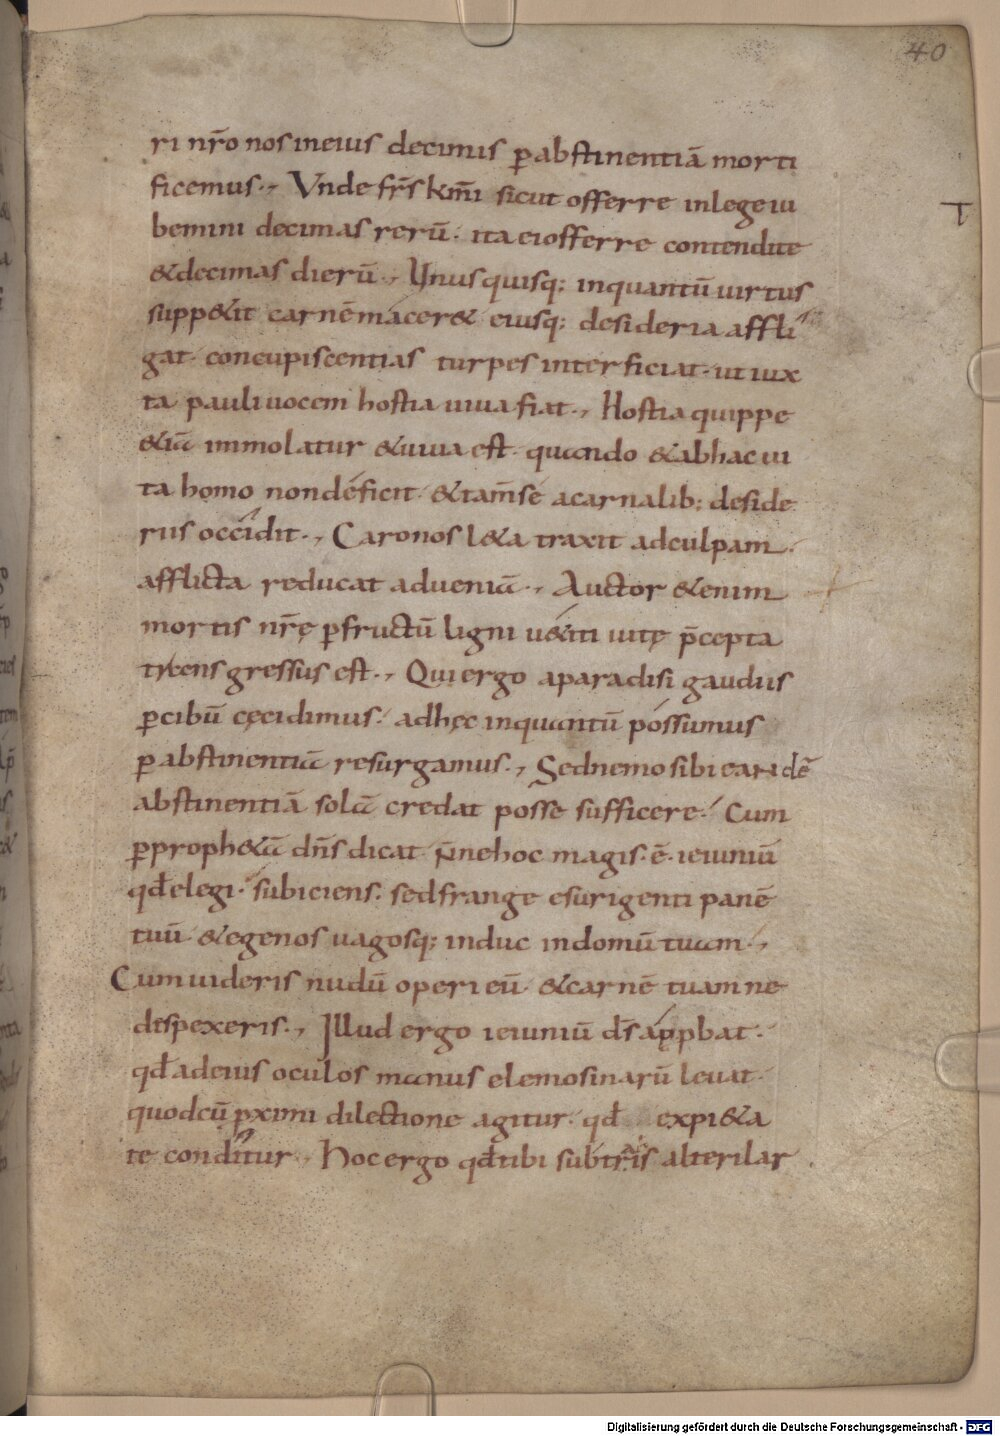 40
ri nr̄o nos in eius decimis ꝑ abstinentiā morti
ficemus·, Vnde fr̄s km̄i sicut offerre in lege iu
T
bemini decimas rerū· ita ei offerre contendite
& decimas dierū·, Vnusquisq; inquantū uirtus
supp&it carnē macer& eiusq; desideria affli
gat· concupiscentias turpes interficiat· ut iux
ta pauli uocem hostia uiua fiat·, Hostia quippe
&iā immolatur & uiua est· quando & ab hac ui
ta homo non deficit· & tam̄ se a carnalib; deside
riis occidit·, Caro nos l&a traxit ad culpam·
afflicta reducat ad ueniā·, Auctor &enim
mortis nr̄ę ꝑ fructū ligni u&iti uitę p̄cepta
transgressus est·, Qui ergo a paradisi gaudiis
ꝑ cibū cęcidimus· ad hęc inquantū possumus
ꝑ abstinentiā resurgamus·, Sed nemo sibi eandē
abstinentiā solā credat posse sufficere· Cum
ꝑ proph&ā dn̄s dicat· n̄ne hoc magis·ē· ieiuniū
qđ elegi· subiciens· sed frange esurienti panē
tuū & egenos uagosq; induc in domū tuam·,
Cum uideris nudū operi eū· & carnē tuam ne
despexeris·, Illud ergo ieiuniū ds̄ apꝓbat·
qđ ad eius oculos manus elemosinarū leuat·
quod cū ꝓximi dilectione agitur· qđ ex pi&a
te conditur·, Hoc ergo qđ tibi subtrais alteri lar
Digitalisierung gefördert durch die Deutsche Forschungsgemeinschaft - DFG